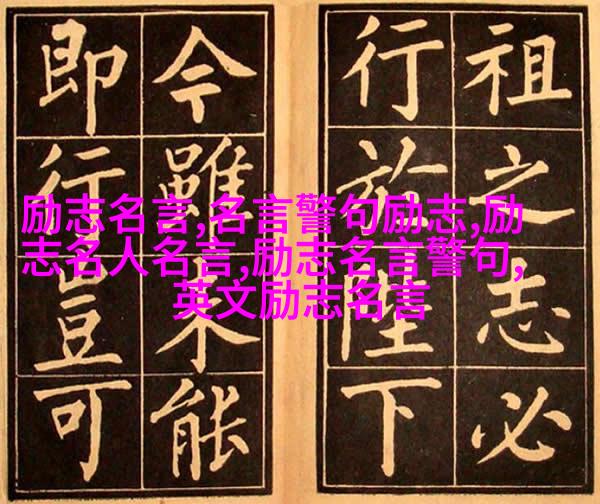 祖之志必
行於陛下
今雖未能
即行豈可
励志名言,名言警句励志,励
志名人名言,励志名言警句,
英文励志名言